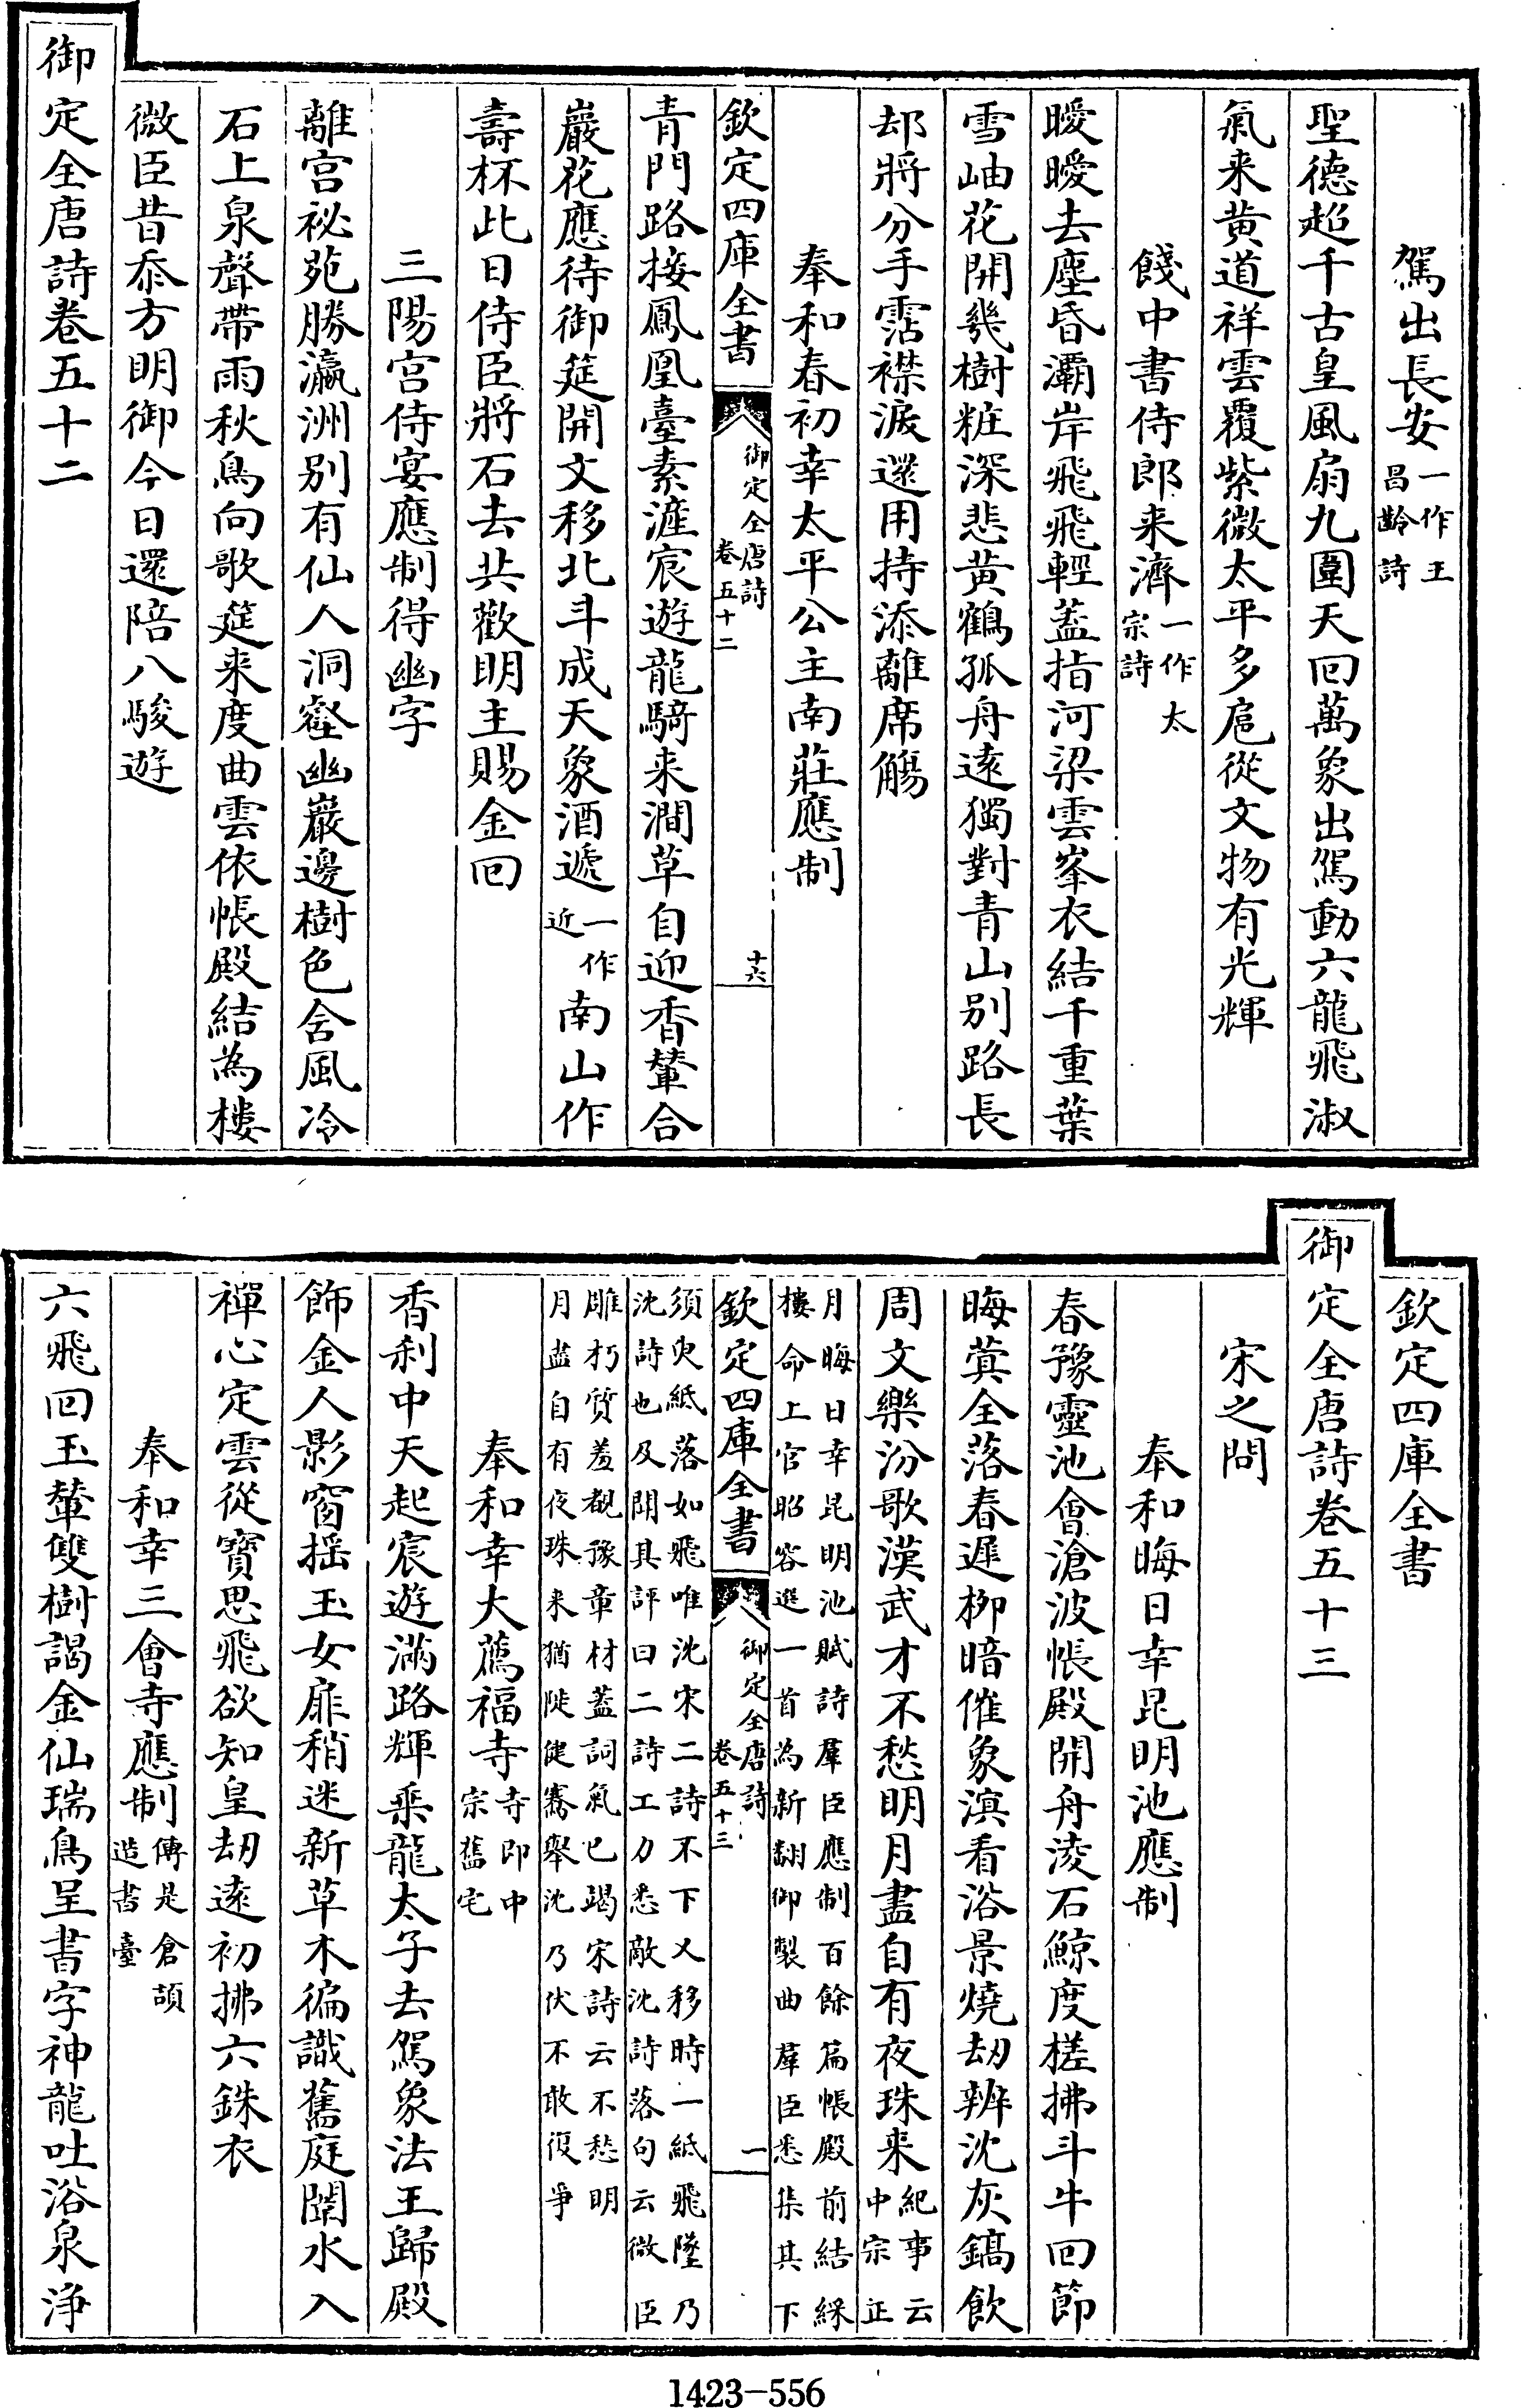 駕出長安一作王昌齡詩
聖德超千古皇風扇九圍天回萬象出駕動六龍飛淑
氣来黄道祥雲覆紫微太平多扈從文物有光輝
餞中書侍郎来濟一作太宗詩
曖曖去塵昏灞岸飛飛輕葢指河梁雲峯衣結千重葉
雪岫花開幾樹粧深悲黄鶴孤舟遠獨對青山别路長
却將分手霑襟淚還用持添離席觴
奉和春初幸太平公主南莊應制
欽定四庫全書
御定全唐詩卷五十二
十六
青門路接鳳凰臺素滻宸遊龍騎来澗草自迎香輦合
巖花應待御筵開文移北斗成天象酒遞一作近南山作
壽杯此日侍臣將石去共歡明主賜金回
三陽宫侍宴應制得幽字
離宫祕苑勝瀛洲别有仙人洞壑幽巖邊樹色含風冷
石上泉聲帶雨秋鳥向歌筵来度曲雲依帳殿結為樓
微臣昔忝方明御今日還陪八駿遊
御定全唐詩卷五十二
欽定四庫全書
御定全唐詩卷五十三
宋之問
奉和晦日幸昆明池應制
春豫靈池會滄波帳殿開舟淩石鯨度槎拂斗牛回節
晦蓂全落春遲柳暗催象溟看浴景燒刼辨沈灰鎬飲
周文樂汾歌漢武才不愁明月盡自有夜珠来紀事云中宗正
月晦日幸昆明池賦詩羣臣應制百餘篇帳殿前結綵
樓命上官昭容選一首為新翻御製曲羣臣悉集其下
欽定四庫全書
御定全唐詩卷五十三
一
須臾紙落如飛唯沈宋二詩不下又移時一紙飛墜乃
沈詩也及開其評曰二詩工力悉敵沈詩落句云微臣
雕朽質羞覩豫章材葢詞氣已竭宋詩云不愁明
月盡自有夜珠来猶陡健騫舉沈乃伏不敢復爭
奉和幸大薦福寺寺即中宗舊宅
香刹中天起宸遊滿路輝乗龍太子去駕象法王歸殿
飾金人影窗揺玉女扉稍迷新草木徧識舊庭闈水入
禪心定雲從寶思飛欲知皇刼遠初拂六銖衣
奉和幸三會寺應制傳是倉頡造書臺
六飛回玉輦雙樹謁金仙瑞鳥呈書字神龍吐浴泉浄
1423-556